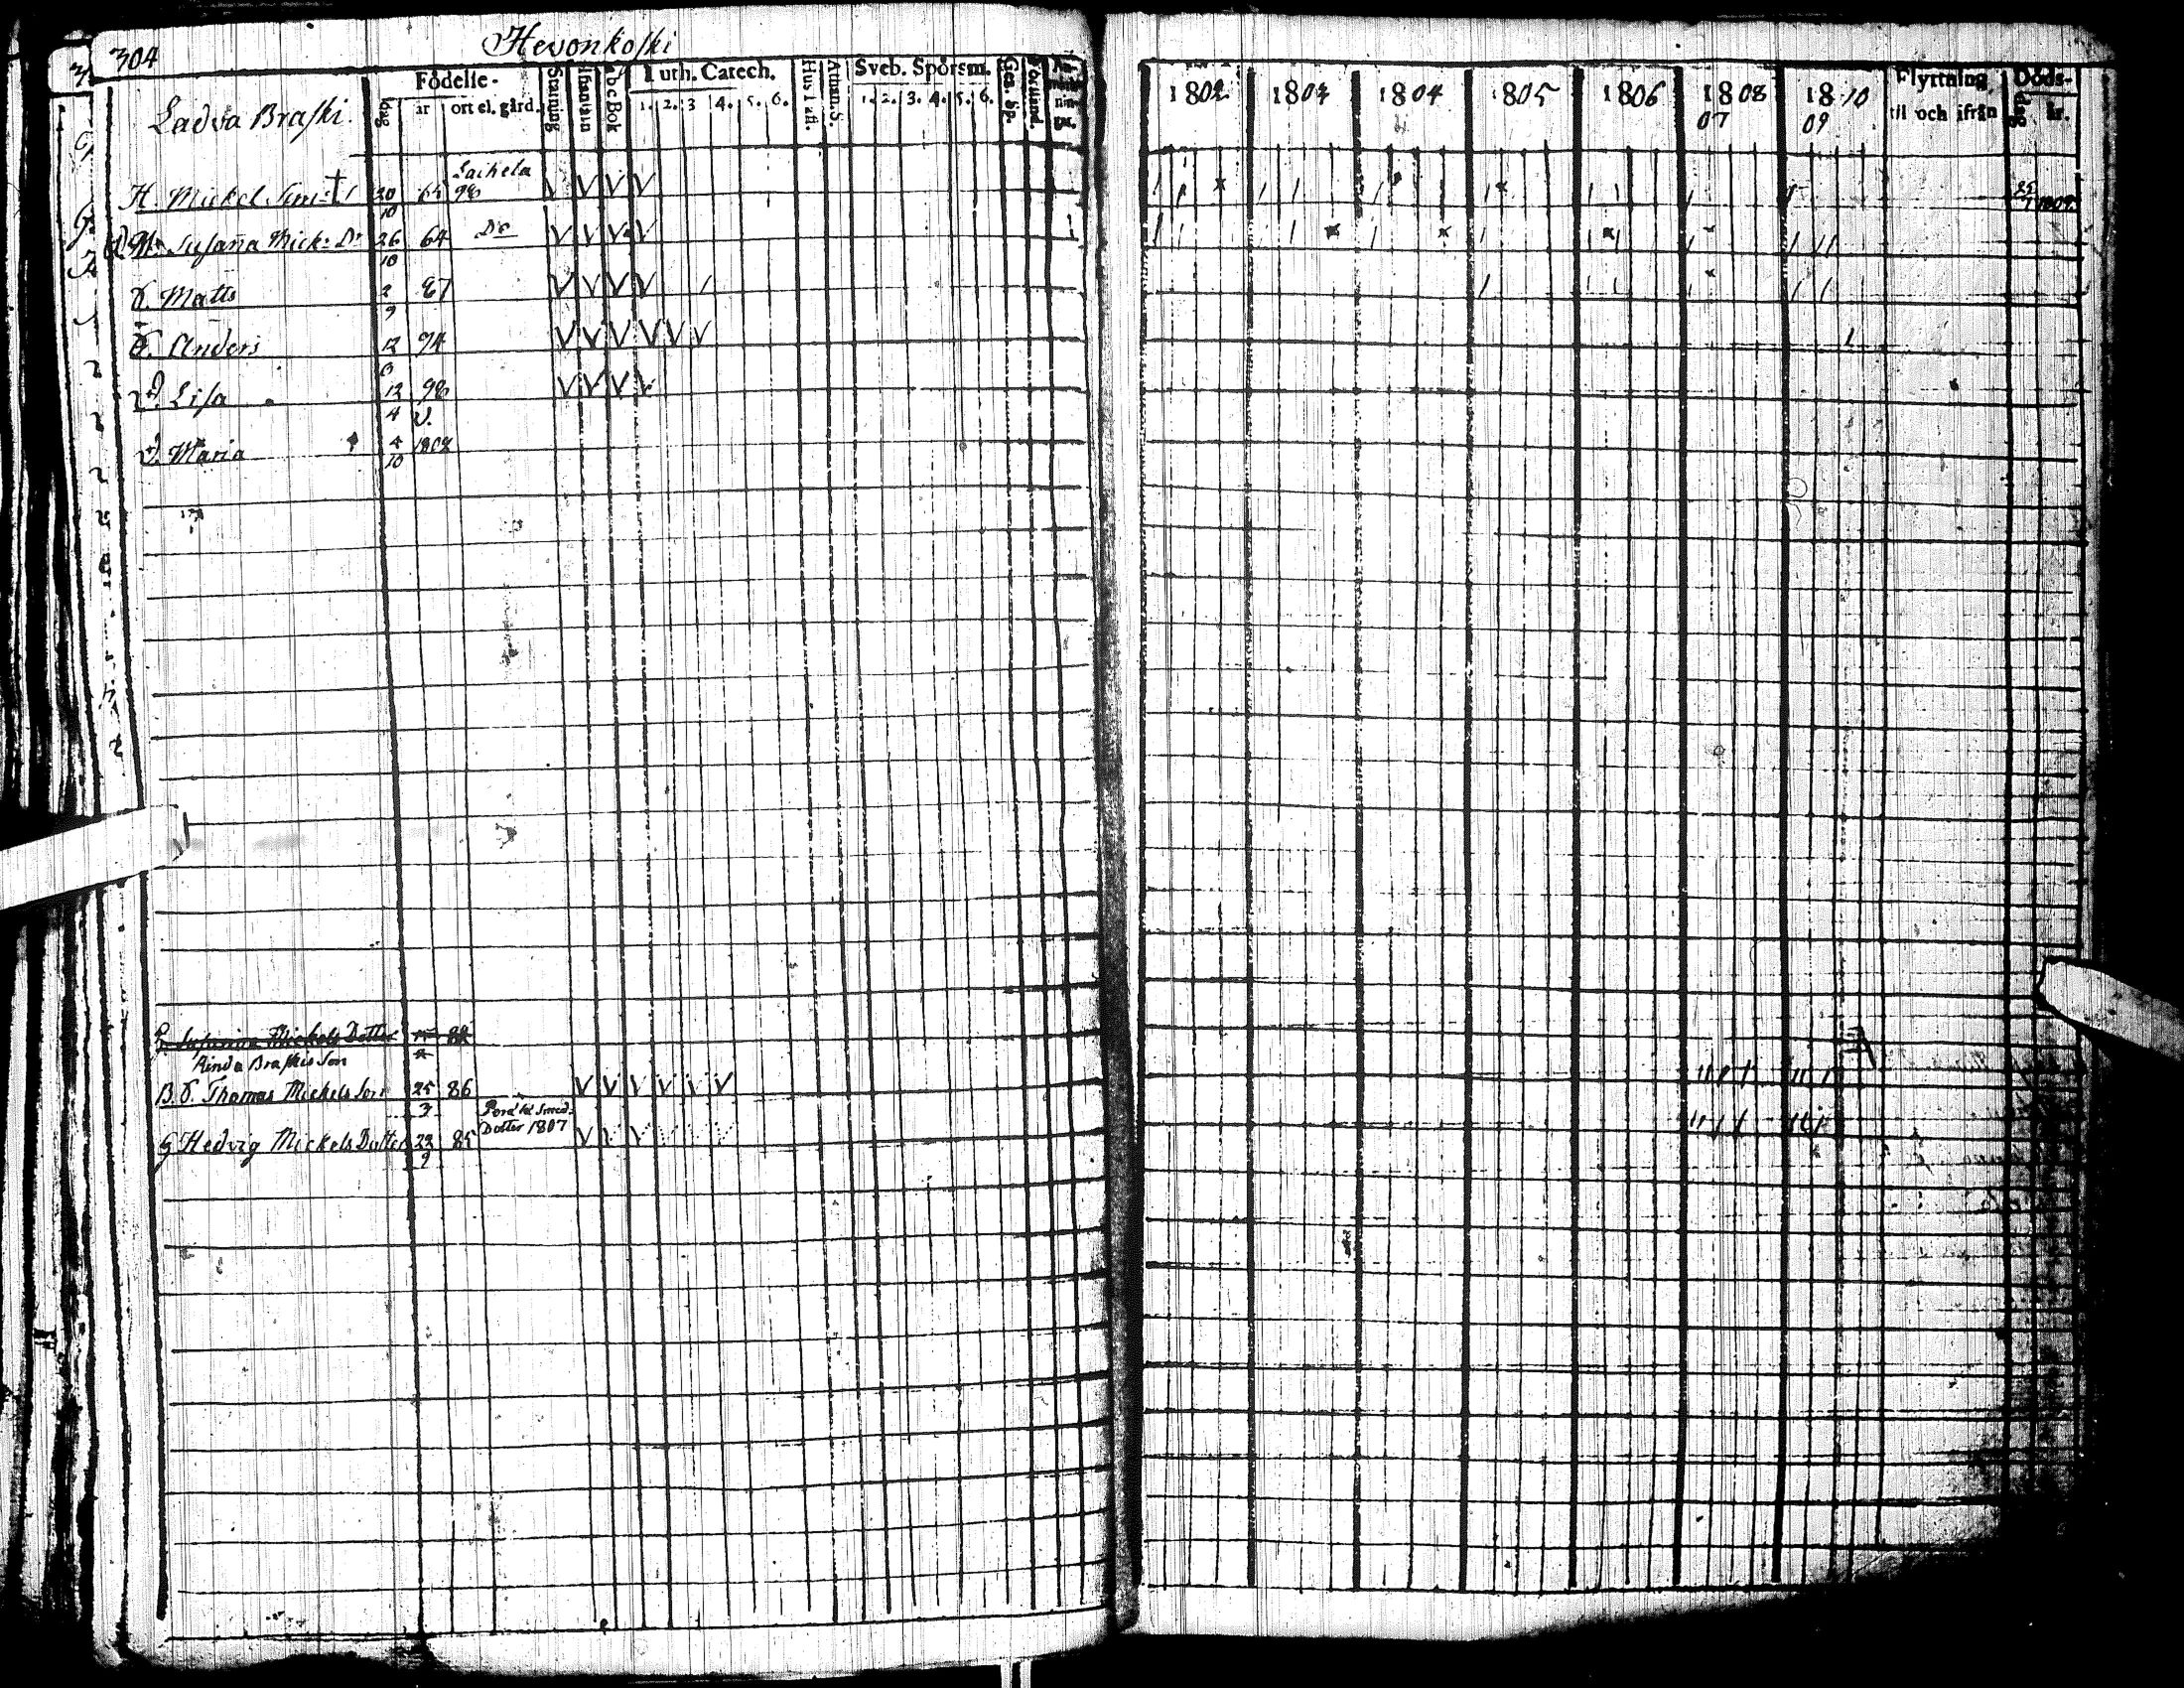 304 Hevonkoski
Ladva Braski.
Födelse-
dag år ort el. gård.
Stafning
abc Bok
Luth. Catech.
1. 2. 3 4. 5. 6.
Hust afl.
Athan. S.
Sveb. Spörsm.
1. 2. 3. 4. 5. 6.
Ges. Sp.
Förstånd.
1802 1803 1804 1805 1806 1808 18 10
07 09
Flyttning
til och ifrån
Döds-
dag år.
H. Mickel Sim: † 20 65 Laihela
10 98
25 1809
7
Susana Mick: Dr 26 64 Do
10
S. Matts 2 87
9
S. Anders 12 94
6
D. Lisa 12 98
4 V.
D. Maria 4 1802
10
Susanna Mickels Dotter 88
Rinda Braskis Son
B. S. Thomas Mickels Son 25 86
3
Dotter 1807
G Hedvig Mickels Dotter 23 85
9